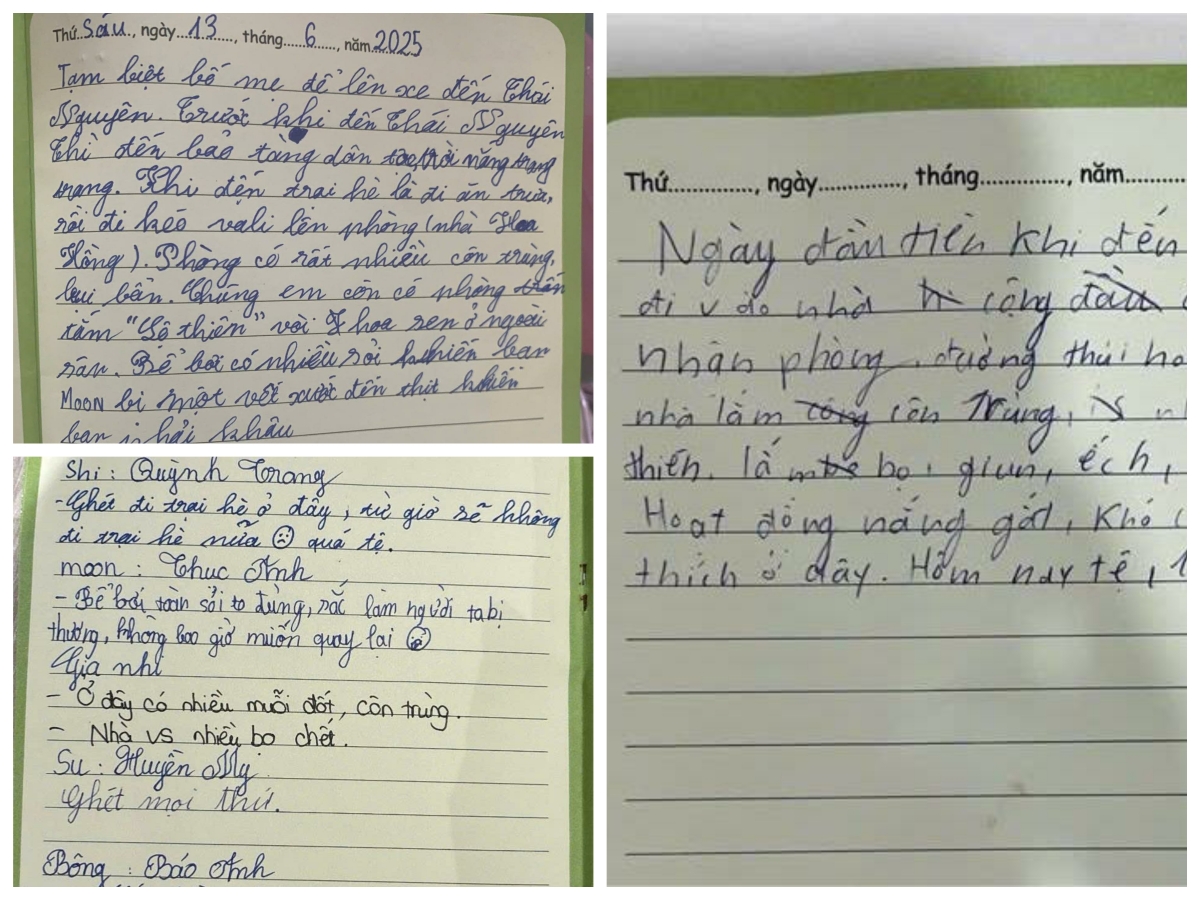 Thứ Sáu, ngày 13, tháng 6, năm 2025
Tạm biệt bố mẹ để lên xe đến Thái
Nguyên. Trước khi đến Thái Nguyên
thì đến bảo tàng dân nắng trang
trang. Khi đến trại hè là đi ăn trưa,
rồi đi kéo vali lên phòng (nhà Hoa
Hồng). Phòng có rất nhiều côn trùng,
bụi bẩn. Chúng em còn có phòng
tắm "Lộ thiên" với hoa sen ở ngoài
sân. Bể bơi có nhiều sỏi khiến bạn
Moon bị một vết xước đến thịt khiến
bạn phải khâu
Shi : Quỳnh Trang
- Ghét đi trại hè ở đây, từ giờ sẽ không
đi trại hè nữa quá tệ.
moon : Thục Anh
- Bể bơi toàn sỏi to đùng, rắc làm người ta bị
thương, không bao giờ muốn quay lại
Gia nhi
- Ở đây có nhiều muỗi đốt, côn trùng.
- Nhà vs nhiều bọ chết.
Su : Huyền My
Ghét mọi thứ.
Bông : Bảo Anh
Thứ, ngày, tháng, năm
Ngày đầu tiên khi đến
đi v do nhà cộng
nhận phòng. đường thúi
nhà lắm côn Trùng,
thiến. lắm bọ, giun, ếch,
Hoạt động nắng gắt, Khó
thích ở đây. Hôm nay tệ,